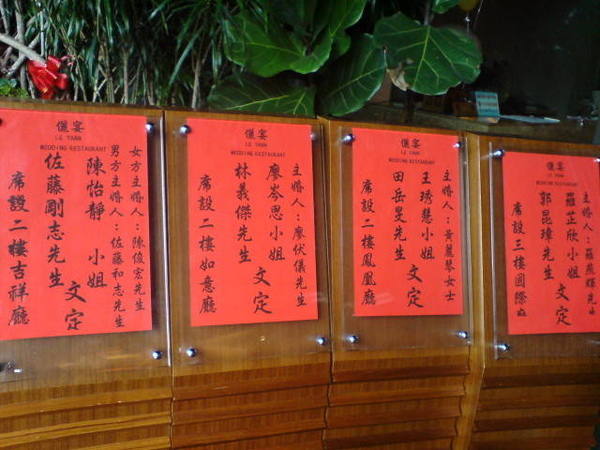 儷宴
LE YANN
WEDDING RESTAURANT
女方主婚人：陳俊宏先生
男方主婚人：佐藤和志先生
陳怡靜 小姐
佐藤剛志先生
文定
席設二樓吉祥廳
儷宴
LE YANN
WEDDING RESTAURANT
主婚人：廖伏儀先生
廖岑思小姐
林義傑先生
文定
席設二樓如意廳
儷宴
LE YANN
WEDDING RESTAURANT
主婚人：黃麗琴女士
王琇慧小姐
田岳旻先生
文定
席設二樓鳳凰廳
儷宴
LE YANN
WEDDING RESTAURANT
主婚人：羅燕輝先生
羅芷欣小姐
郭昆璋先生
文定
席設三樓國際廳